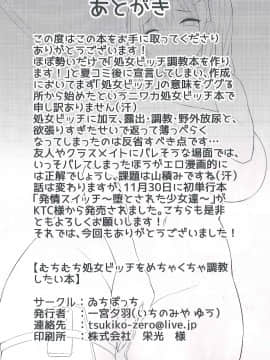 あとがき
この度はこの本をお手に取ってくださり
ありがとうございます！
ほぼ勢いだけで「処女ビッチ調教本を作り
ます！」と夏コミ後に宣言してしまい、作成
において まず「処女ビッチ」の意味をググる
所から始めたというニワカ処女ビッチ本で
申し訳ありません(汗)
処女ビッチに加え、露出・調教・野外放尿と、
欲張りすぎたせいで返って薄っぺらく
なってしまったのは反省すべき点です…
友人やクラスメイトにバレそうな場面では、
いっそバレてしまったほうがエロ漫画的に
は正解でしょうし、課題は山積みですね(汗)
話は変わりますが、11月30日に初単行本
『発情スイッチ～堕とされた少女達～』が
KTC様から発売されました。こちらも是非
ともよろしくお願いします！
それでは、今回もありがとうございました！
【むちむち処女ビッチをめちゃくちゃ調教
したい本】
サークル：ゐちぼっち
発行者：一宮夕羽(いちのみや ゆう)
連絡先：tsukiko-zero@live.jp
印刷所：株式会社 栄光 様